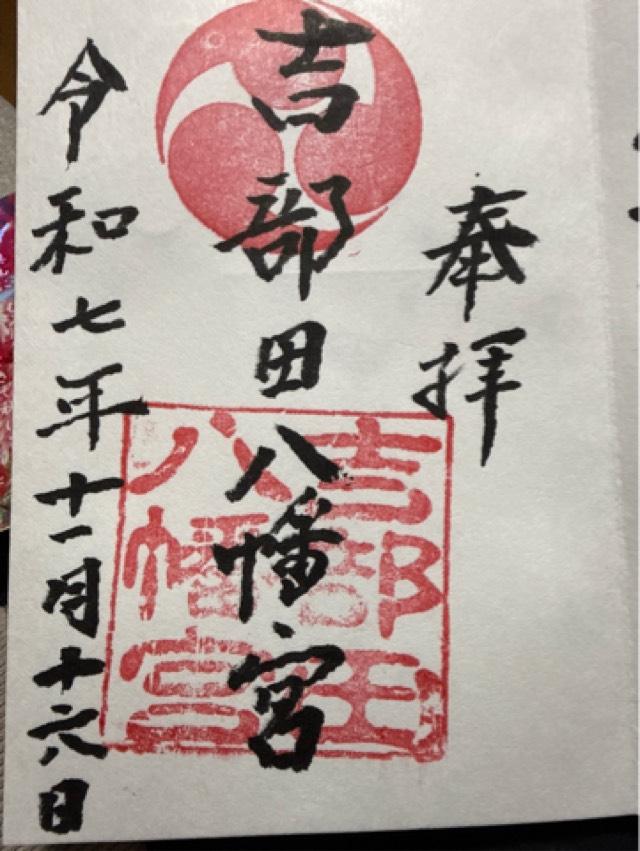 奉拝
吉部田八幡宮
令和七年十一月十六日
吉部
八幡宮